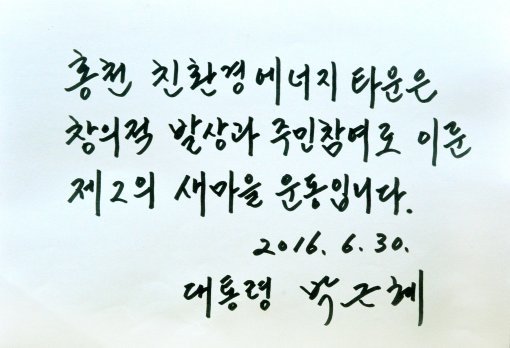 홍천 친환경에너지타운은
창의적 발상과 주민참여로 이룬
제2의 새마을 운동입니다.
2016. 6. 30.
대통령 박근혜